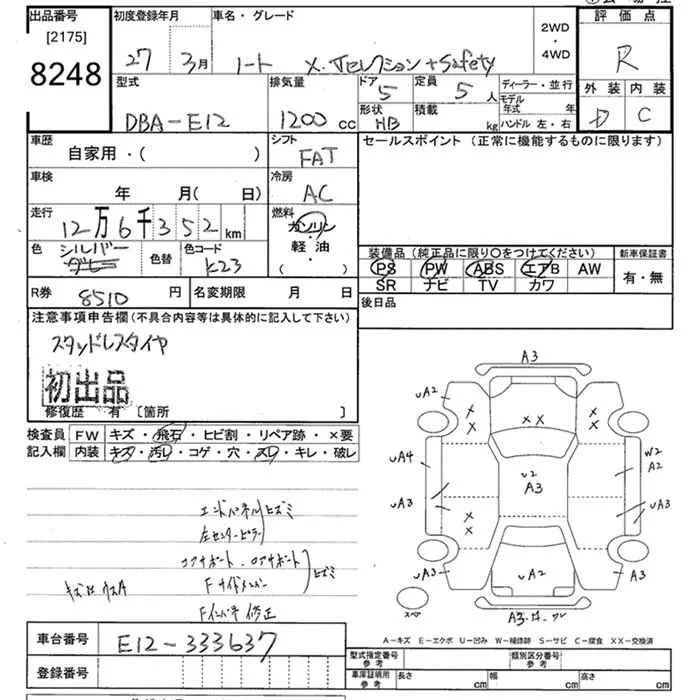 出品番号
[2175]
8248
初度登録年月
27 3月
車名・グレード
ノート X.Vセレクション+Safety
2WD
・
4WD
評価点
R
外装 内装
D C
型式
DBA-E12
排気量
1200 cc
ドア
5
定員
5 人
形状
HB
積載
kg
ディーラー・並行
モデル年式 年
ハンドル 左・右
車歴
自家用・( )
シフト
FAT
セールスポイント (正常に機能するものに限ります)
車検
年 月( 日)
冷房
AC
走行
12万6千352 km
燃料
ガソリン
・
軽油
・
( )
色
シルバー
グレー
色替
色コード
K23
装備品 (純正品に限り○をつけてください)
PS PW ABS エアB AW
SR ナビ TV カワ
新車保証書
有・無
R券
8510 円
名変期限 月 日
後日品
注意事項申告欄 (不具合内容等は具体的に記入して下さい)
スタッドレスタイヤ
初出品
修復歴 有 [箇所 ]
検査員
記入欄
FW キズ・飛石・ヒビ割・リペア跡・×要
内装 キズ・汚レ・コゲ・穴・スレ・キレ・破レ
エンドパネルヒズミ
左センターピラー
コアサポート・ロアサポート
Fサイドメンバー ヒズミ
Fインパネ修正
A3
uA2
×
×
× ×
×
×
uA4
u2
A3
W2
A2
uA3
×
×
uA3
uA3
uA2
A3
スペア
A-キズ E-エクボ U-凹み W-補修跡 S-サビ C-腐食 XX-交換済
車台番号
E12-333637
登録番号
型式指定番号
参考
類別区分番号
参考
車庫証明用
参考
長さ cm
幅 cm
高さ cm